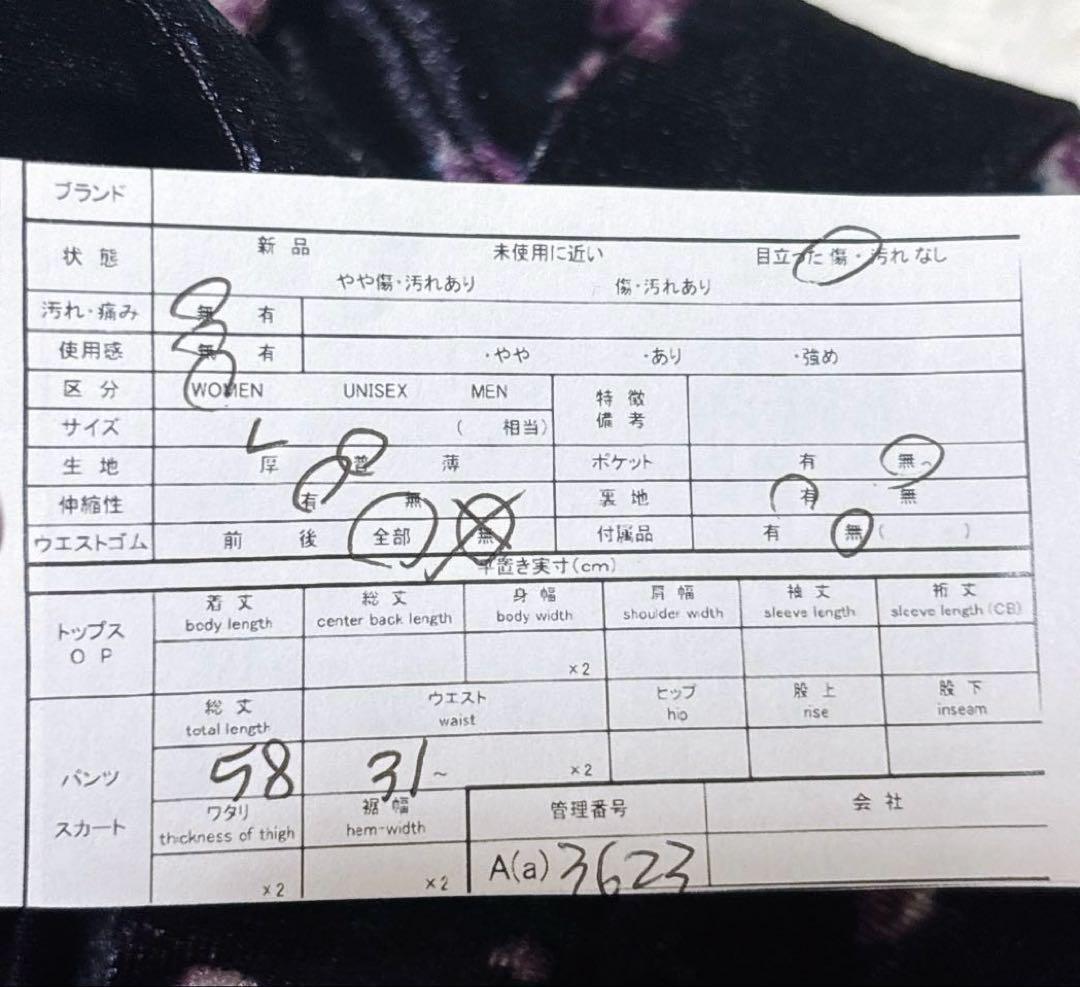 ブランド
状態 新品 未使用に近い 目立った傷・汚れなし
やや傷・汚れあり 傷・汚れあり
汚れ・痛み 無 有
使用感 無 有 ・やや ・あり ・強め
区分 WOMEN UNISEX MEN 特徴
備考
サイズ L ( 相当)
生地 厚 普 薄 ポケット 有 無
伸縮性 有 無 裏地 有 無
ウエストゴム 前 後 全部 無 付属品 有 無( )
平置き実寸(cm)
着丈 総丈 身幅 肩幅 袖丈 裄丈
body length center back length body width shoulder width sleeve length sleeve length(CB)
トップス
OP ×2
総丈 ウエスト ヒップ 股上 股下
total length waist hip rise inseam
パンツ 58 31~ ×2
スカート ワタリ 裾幅 管理番号 会社
thickness of thigh hem-width
×2 ×2 A(a) 3623